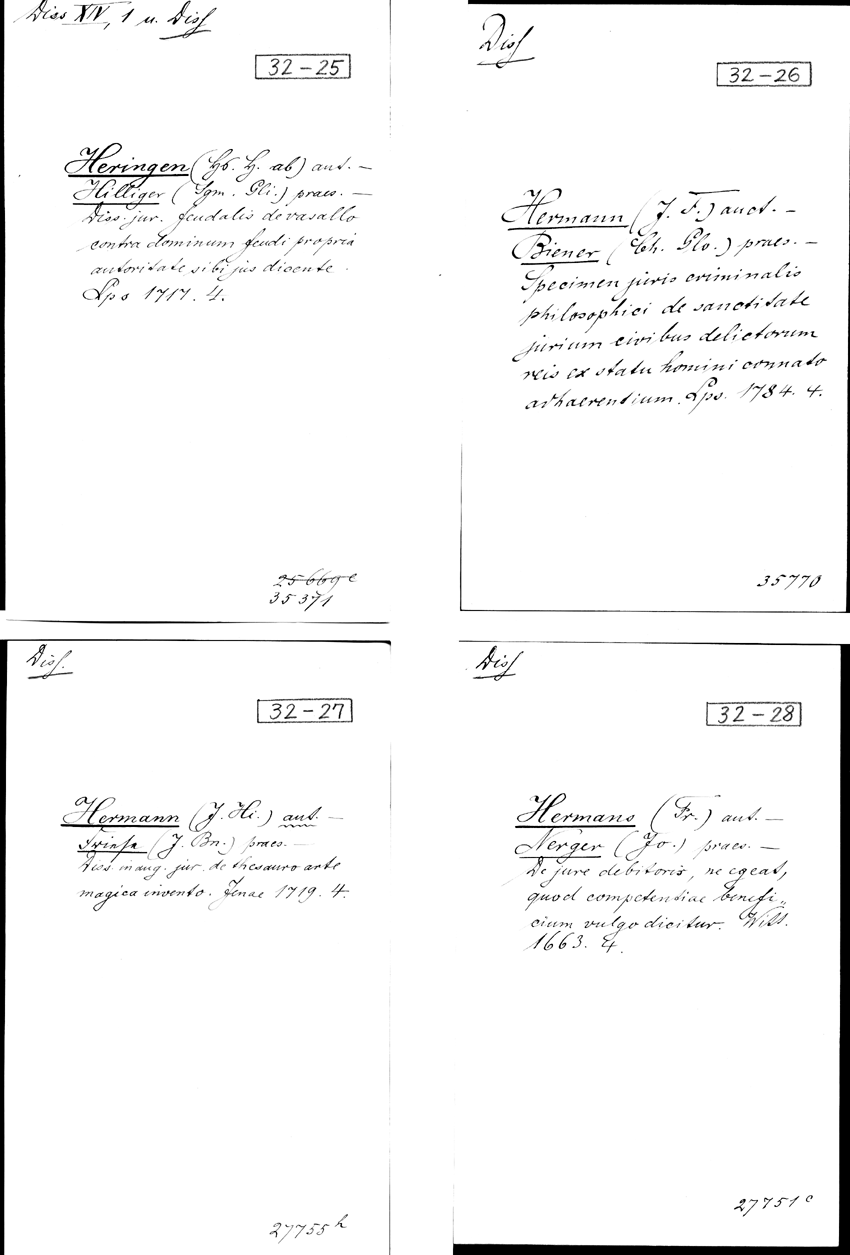 Diss XIV, 1 u. Diss
32-25
Heringen (Hs. H. ab) aut. —
Hilliger (Sgm. Gli.) praes. —
Diss. jur. feudalis de vasallo
contra dominum feudi propria
autoritate sibi jus dicente.
Lps 1717. 4.
25669 c
35371
Diss
32-26
Hermann (J. F.) auct. —
Biener (Ch. Glo.) praes. —
Specimen juris criminalis
philosophici de sanctitate
jurium civibus delictorum
reis ex statu homini connato
adhaerentium. Lps. 1784. 4.
35770
Diss.
32-27
Hermann (J. Hi.) aut. —
Friese (J. Bn.) praes. —
Diss. inaug. jur. de thesauro arte
magica invento. Jenae 1719. 4.
27755 h
Diss
32-28
Hermans (Fr.) aut. —
Nerger (Jo.) praes. —
De jure debitoris, ne egeat,
quod competentiae benefi„
cium vulgo dicitur. Witt.
1663. 4.
27751 c